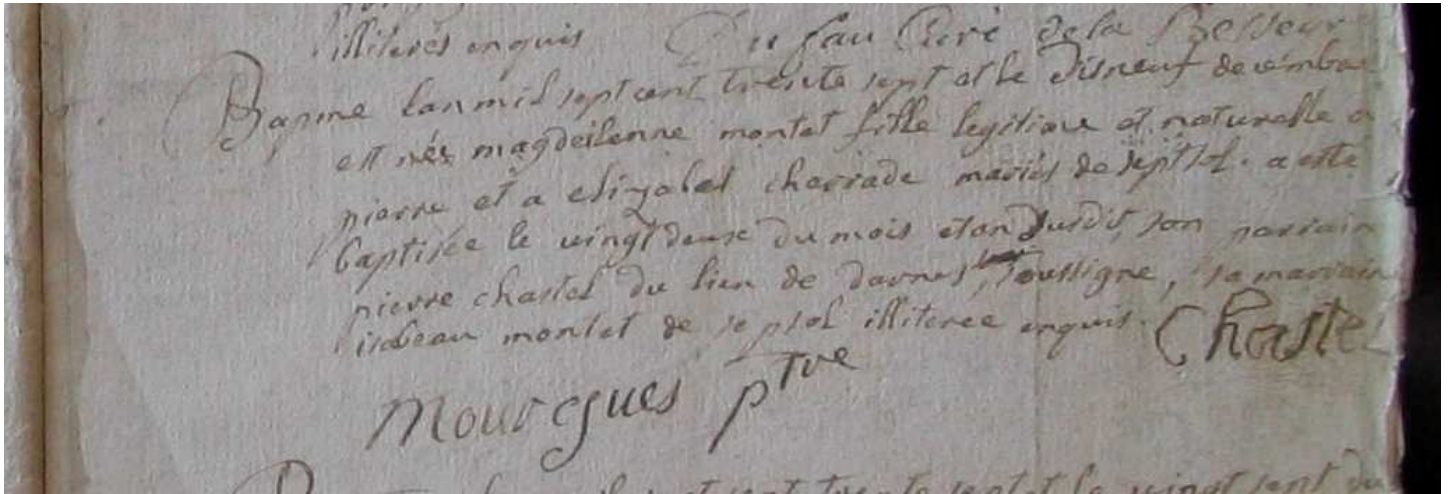 illiterés enquis Dufau Curé de la Besseyr
Bapme lan mil sept cent trente sept et le disneuf decembre
est née magdeilenne montet fille legitime et naturelle a
pierre et a elizabel charrade mariés de septsol. a esté
baptisée le vingt deux du mois et an susdit, son parrain
pierre chastel du lieu de darnes, soussigne, sa marrain
isabeau montet de septsol illiteree enquis. Chastel
Mourgues ptre
trente sept et le vingt sept du